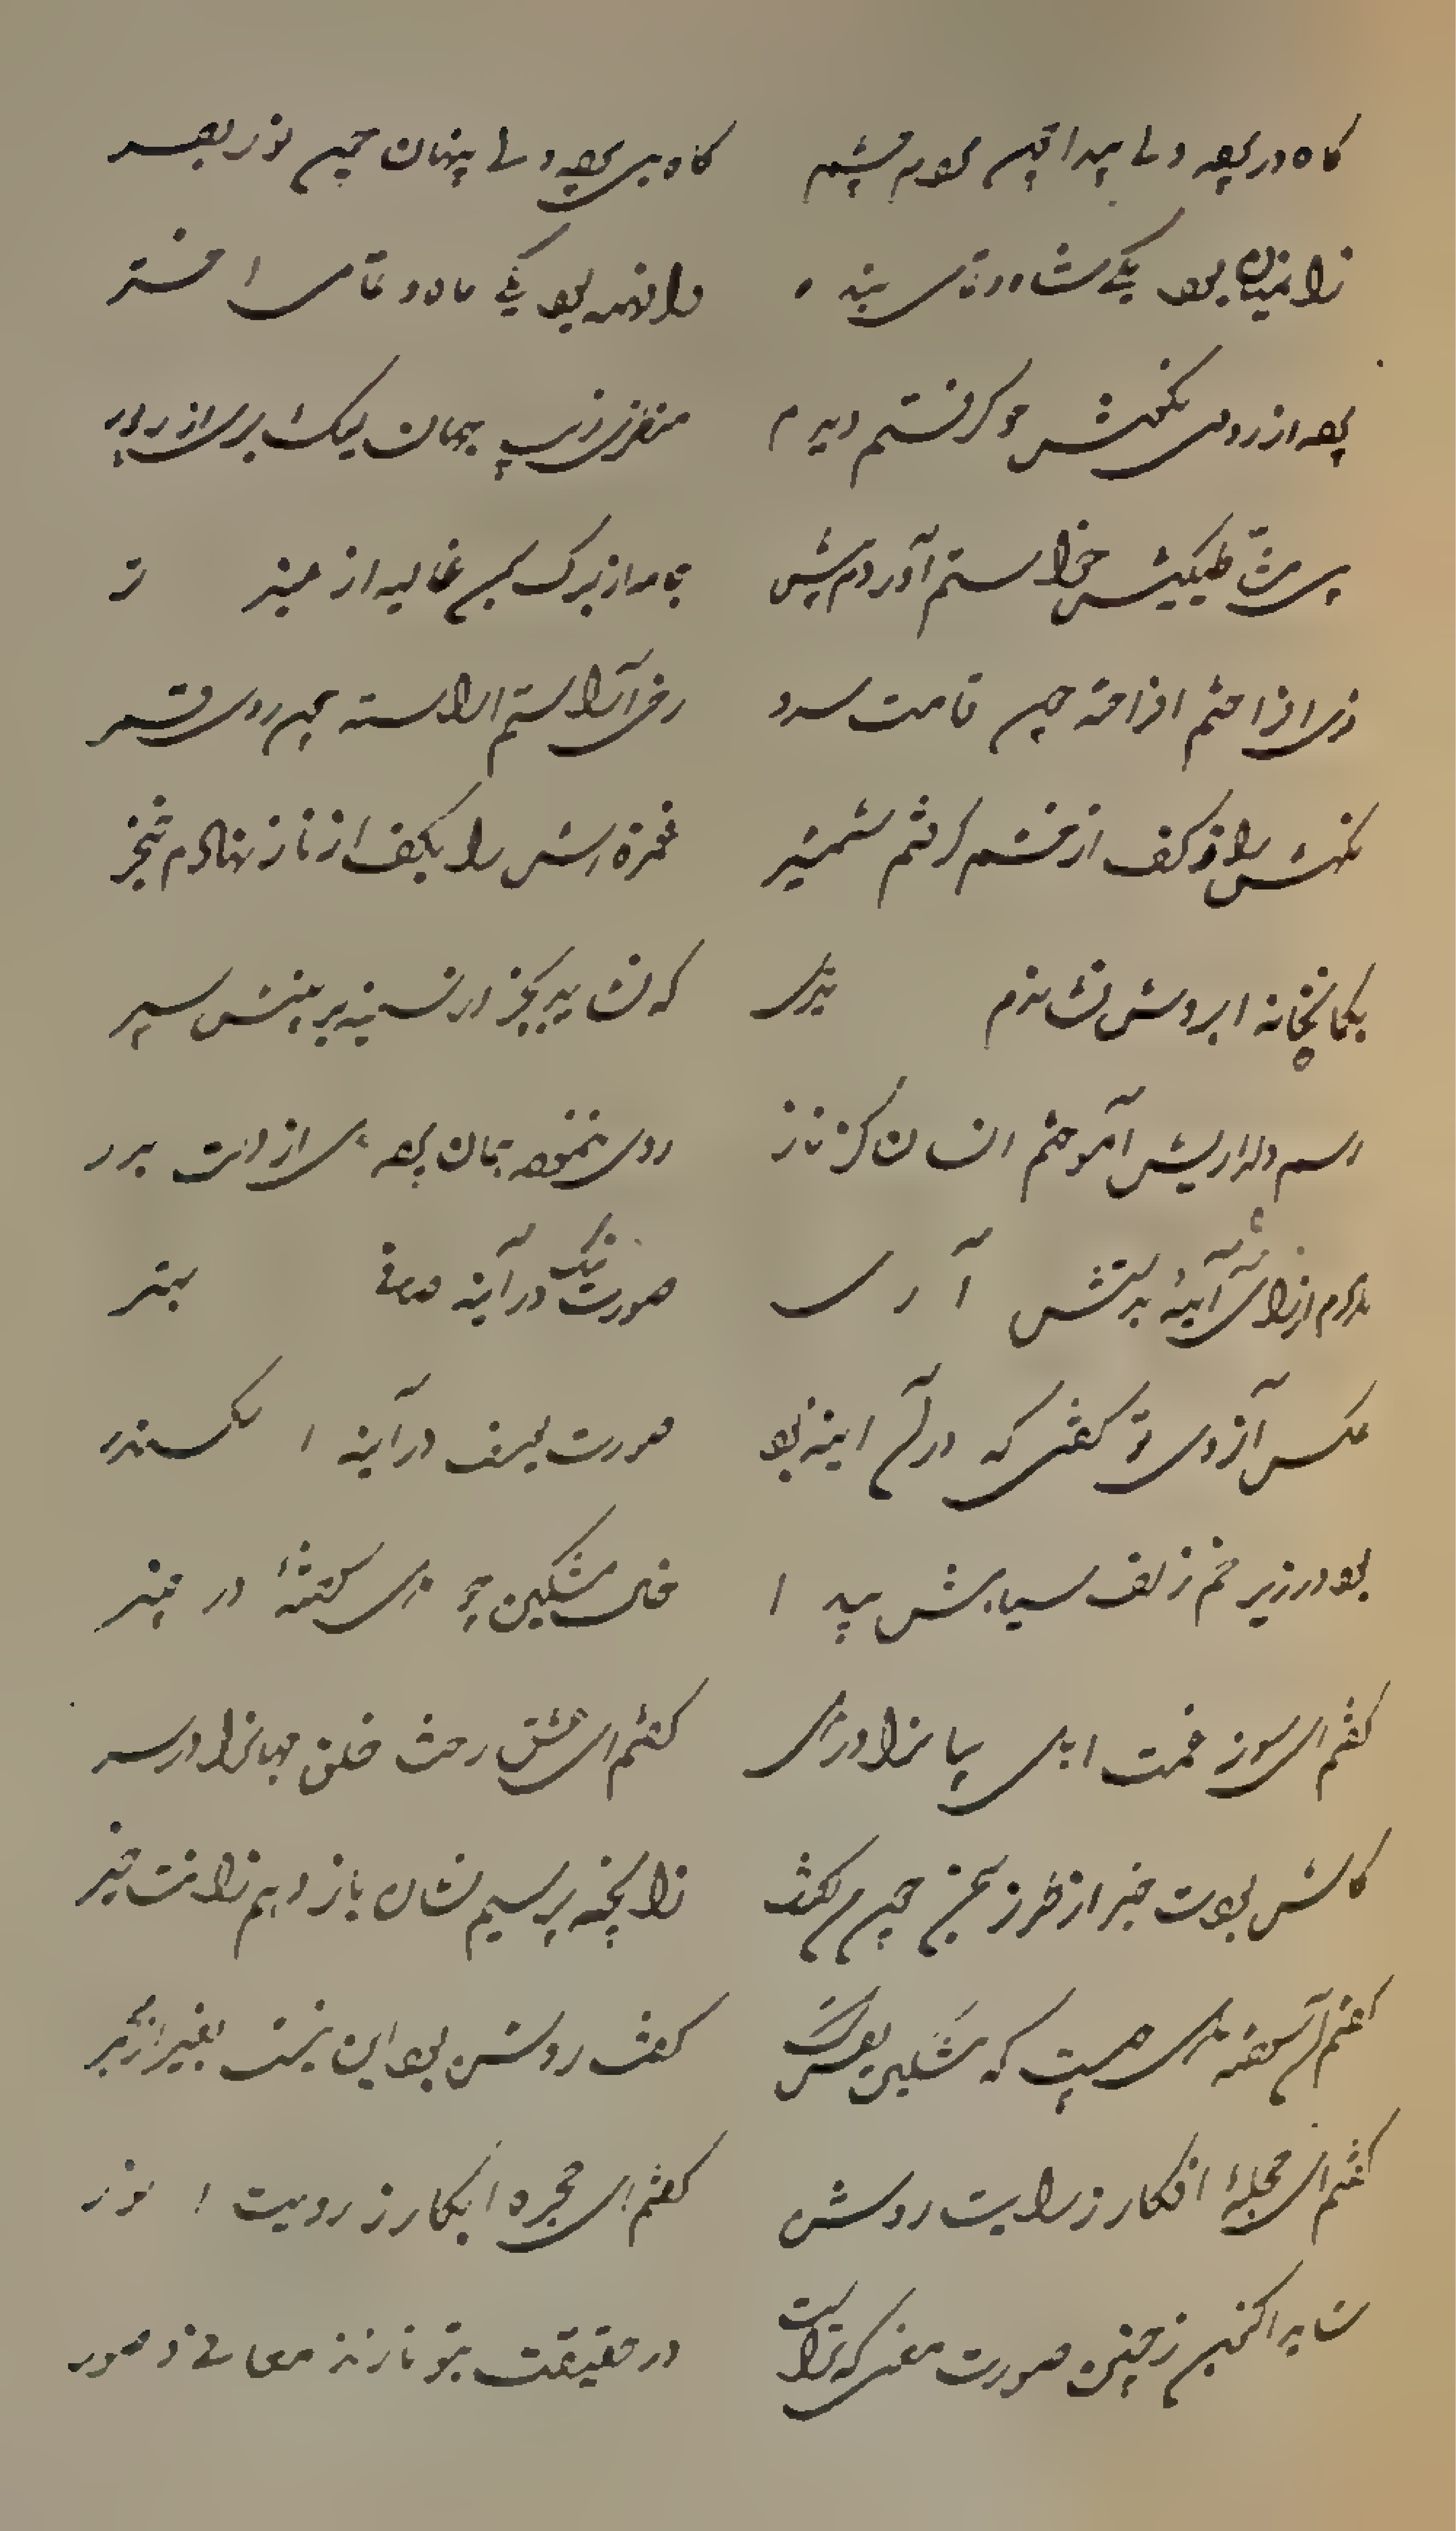 گاه در پرده ولی پیدا چون مردم چشم گاه بی پرده ولی پنهان چون نور بصر
زانمیان بود یکی شاه و تمامی بنده وانهمه بود یکی ماه و تمامی اختر
پرده از روی نکویش چو گرفتم دیدم منظری زیب جهان لیک
پی مشاطگیش خواستم آوردم پیش جامه از برگ سمن غالیه از عنبر تر
قدی افراختم افراخته چون قامت سرو رخی آراستم آراسته چون روی قمر
نگهش را در کف از خشم گرفتم شمشیر غمزه اش را بکف از ناز نهادم خنجر
بکمانخانه ابرویش نشاندم تیری که نشاید بجز از سینه بر پیشش سپر
رسم دلداریش آموختم انسان کز ناز روی ننموده بمان پرده
دادم از رای آینه بدستش آری صورت نیک در آینه صافی بهتر
عکس آن روی تو گفتی که در آن اینه بود صورت یوسف در آینه اسکندر
بود در زیر خم زلف سیاهش پیدا خال مشکین چو دل سوخته در عنبر
گفتم ای سوز غمت اهل بیانرا در دل گفتم ای عشق رخت خلق جهانرا در سر
کاش بودت خبر از طرز سخن چون گفت زانچه پرسیم نشان باز دهم زانت خبر
گفتم آشفته دلی چیست که مشکین نفس گفت روشن بود این نیست بغیر از مجمر
گفتم ای حجله افکار ز رایت روشن گفتم ای حجره ابکار ز رویت انور
شاید اکنون ز چنین صورت معنی که تراست در حقیقت بتو نازند معانی و صور